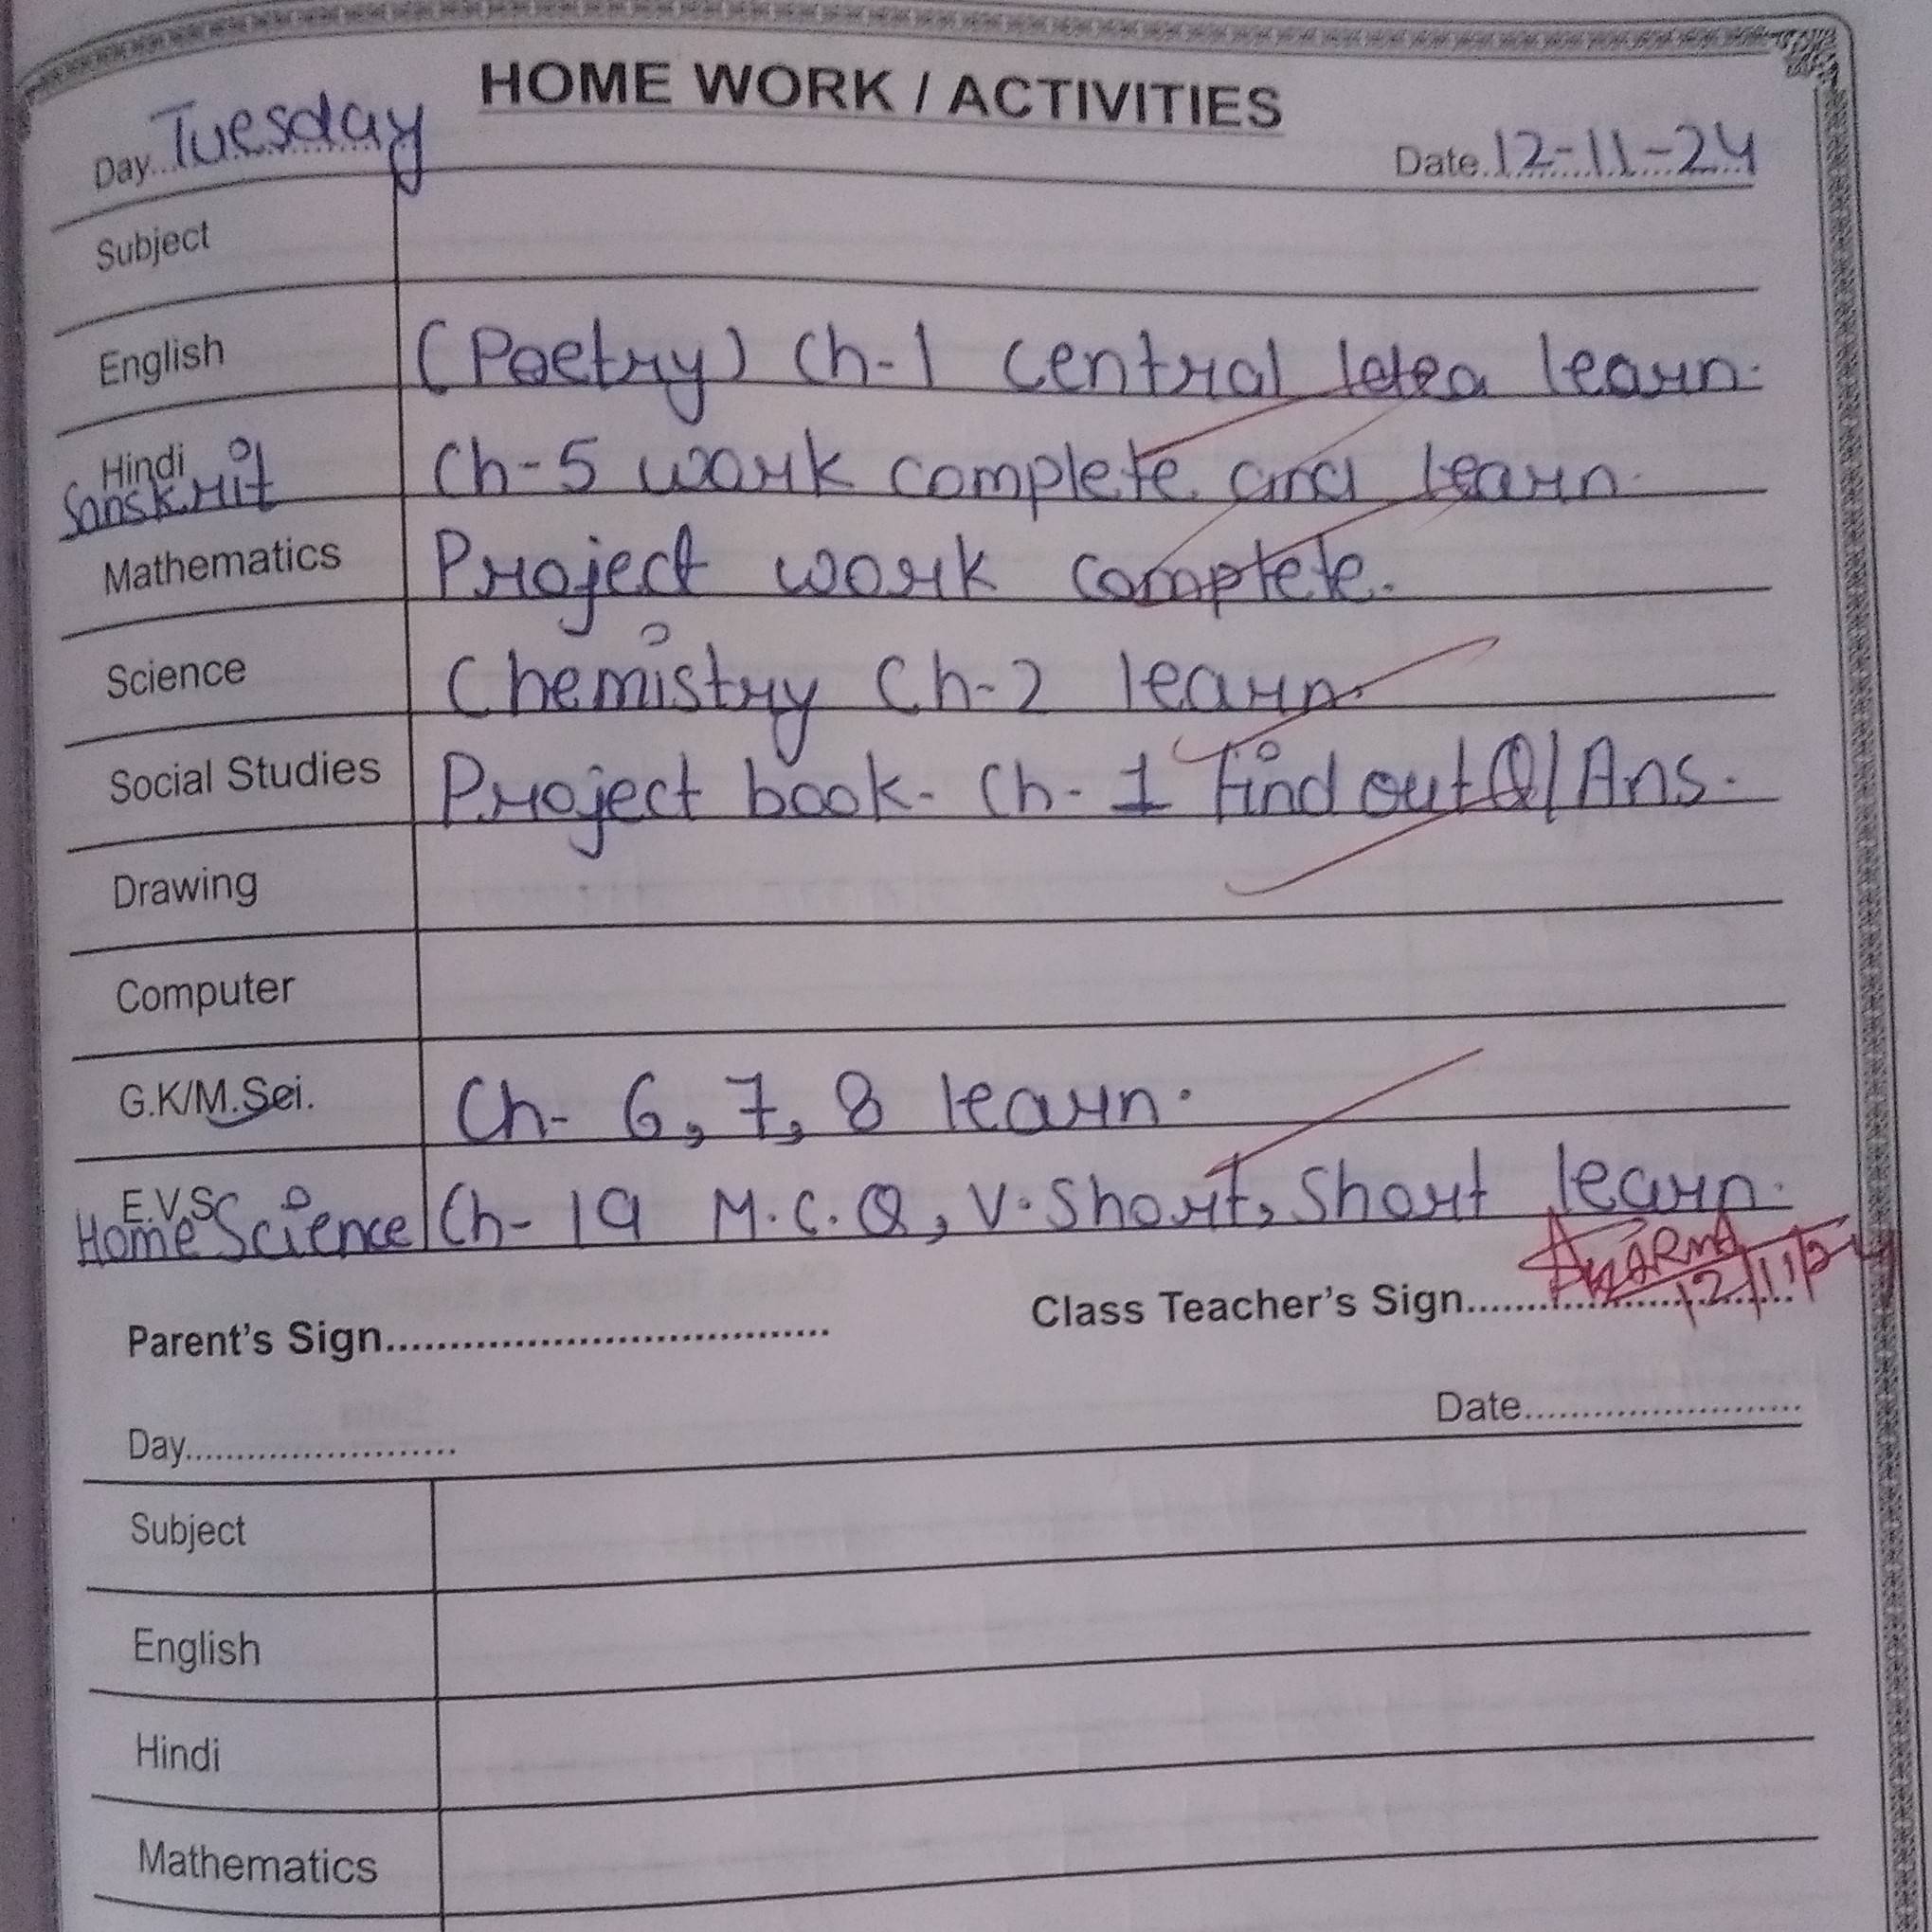 HOME WORK / ACTIVITIES
Day..Tuesday
Date.12-11-24
Subject
English (Poetry) Ch-1 central Idea learn.
Hindi
Sanskrit Ch-5 work complete and learn.
Mathematics Project work complete.
Science Chemistry Ch-2 learn.
Social Studies Project book- Ch-1 find out Q/Ans.
Drawing
Computer
G.K/M.Sei. Ch- 6, 7, 8 learn.
E.V.S
Home Science Ch- 19 M.C.Q, V.Short, Short learn.
Parent's Sign...................................
Class Teacher's Sign.......................... 12/11/24
Day........................
Date.........................
Subject
English
Hindi
Mathematics